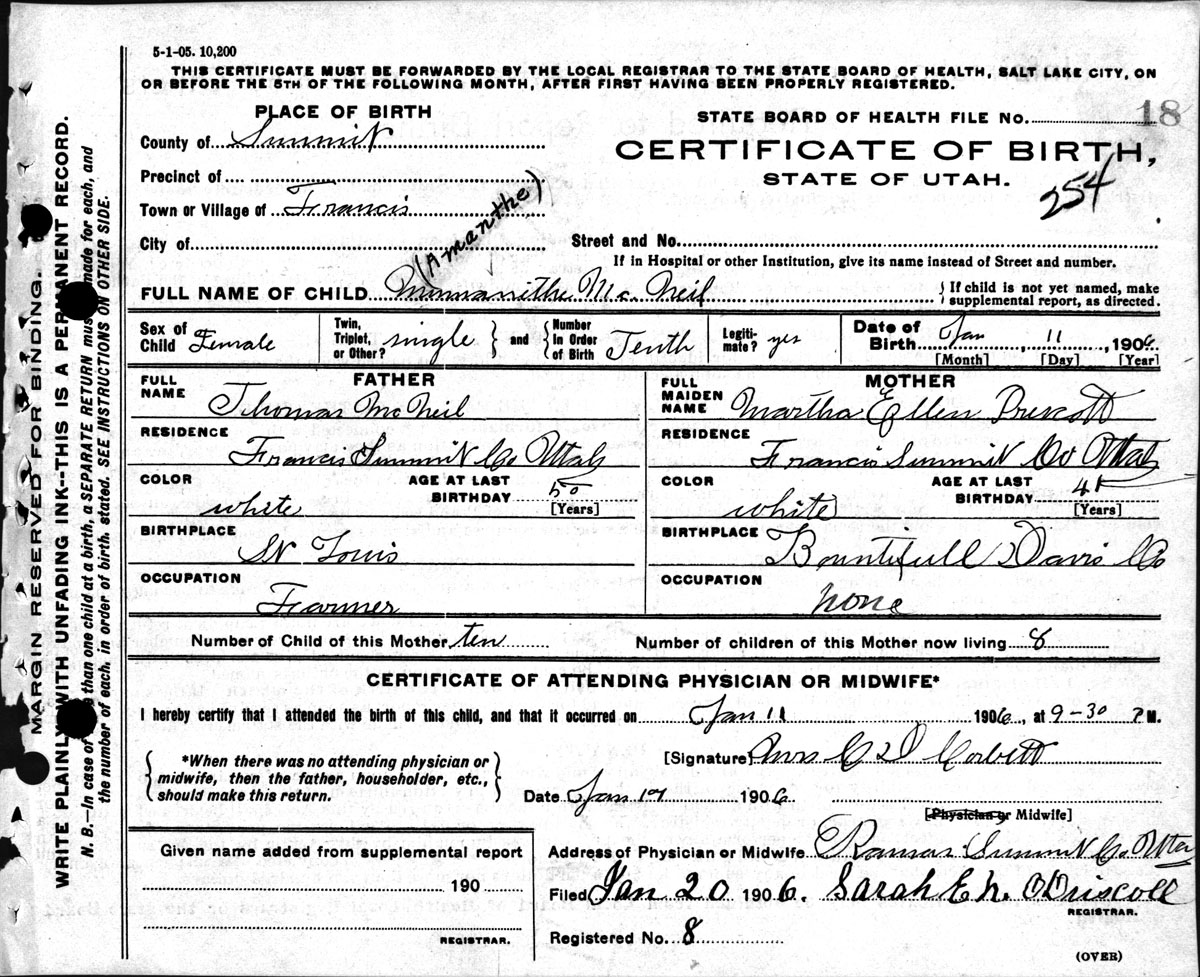 5-1-05. 10,200
THIS CERTIFICATE MUST BE FORWARDED BY THE LOCAL REGISTRAR TO THE STATE BOARD OF HEALTH, SALT LAKE CITY, ON
OR BEFORE THE 5TH OF THE FOLLOWING MONTH, AFTER FIRST HAVING BEEN PROPERLY REGISTERED.
PLACE OF BIRTH
County of Summit
Precinct of
Town or Village of Francis
City of
STATE BOARD OF HEALTH FILE No. 18
CERTIFICATE OF BIRTH,
STATE OF UTAH.
254
Street and No.
If in Hospital or other Institution, give its name instead of Street and number.
(Amanthe)
FULL NAME OF CHILD Mc Neil
{ If child is not yet named, make
supplemental report, as directed.
Sex of Child Female
Twin, Triplet, or Other? single } and { Number In Order of Birth Tenth
Legiti- mate? yes
Date of Birth Jan 11, 1906.
[Month] [Day] [Year]
FATHER
FULL NAME Thomas McNeil
RESIDENCE Francis Summit Co Utah
COLOR white
AGE AT LAST BIRTHDAY 50
[Years]
BIRTHPLACE St Louis
OCCUPATION Farmer
MOTHER
FULL MAIDEN NAME Martha Ellen Prescott
RESIDENCE Francis Summit Co Utah
COLOR white
AGE AT LAST BIRTHDAY
[Years]
BIRTHPLACE Bountifull Davis Co
OCCUPATION none
Number of Child of this Mother ten
Number of children of this Mother now living 8
CERTIFICATE OF ATTENDING PHYSICIAN OR MIDWIFE*
I hereby certify that I attended the birth of this child, and that it occurred on Jan 11 1906, at 9-30 P M.
{ *When there was no attending physician or
midwife, then the father, householder, etc.,
should make this return. }
[Signature] Mrs C D Corbett
Date Jan 17 1906
[Physician or Midwife]
Given name added from supplemental report
190
REGISTRAR.
Address of Physician or Midwife Kamas Summit Co Utah
Filed Jan 20 1906. Sarah E. N. O'Driscoll
REGISTRAR.
Registered No. 8
(OVER)
MARGIN RESERVED FOR BINDING.
WRITE PLAINLY WITH UNFADING INK--THIS IS A PERMANENT RECORD.
N. B.—In case of than one child at a birth, a SEPARATE RETURN must made for each, and
the number of each, in order of birth, stated. SEE INSTRUCTIONS ON OTHER SIDE.